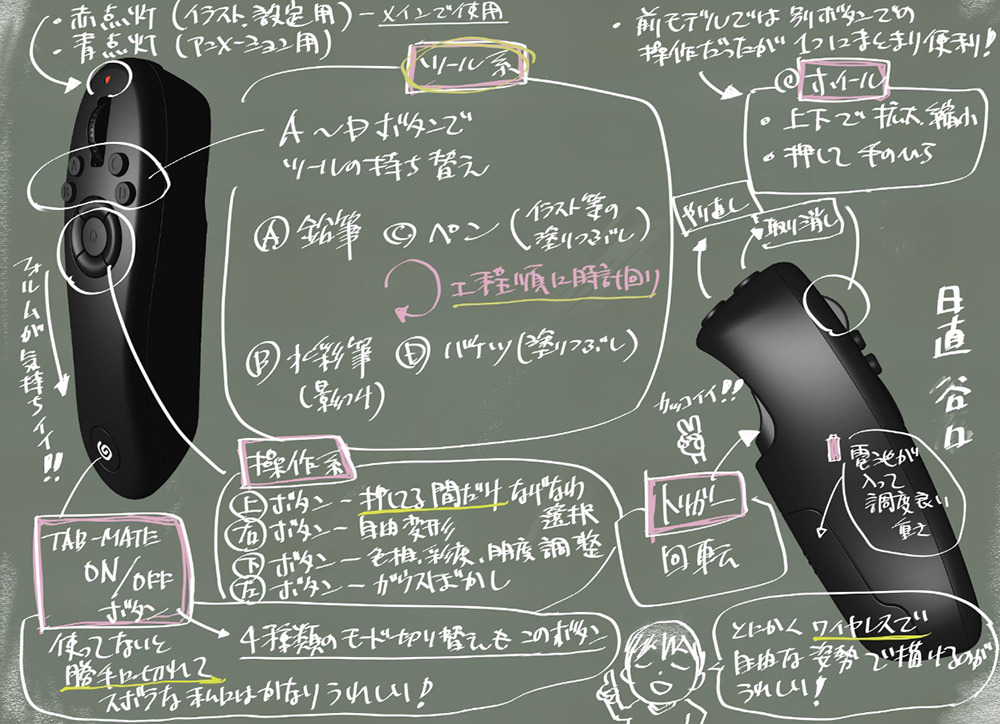 ・赤点灯(イラスト、設定用)-メインで使用
・青点灯(アニメーション用)
・前モデルでは別ボタンでの
操作だったが1つにまとまり便利!
ツール系
A〜Dボタンで
ツールの持ち替え
Ⓐ 鉛筆
Ⓒ ペン(イラスト等の
塗りつぶし)
工程順に時計回り
Ⓑ 水彩筆
(影つけ)
Ⓓ バケツ(塗りつぶし)
◎ホイール
・上下で拡大、縮小
・押して手のひら
やり直し
取り消し
A
B
C
D
フォルムが気持ちイイ!!
日直 谷口
カッコイイ!!
トリガー
回転
電池が
入って
調度良い
重さ
操作系
㊤ボタン-押してる間だけなげなわ
選択
㊨ボタン-自由変形
㊦ボタン-色相、彩度、明度調整
㊧ボタン-ガウスぼかし
TAB-MATE
ON/OFF
ボタン
4種類のモード切り替えもこのボタン
使ってないと
勝手に切れて
ズボラな私にはかなりうれしい!
とにかくワイヤレスで
自由な姿勢で描けるのが
うれしい!